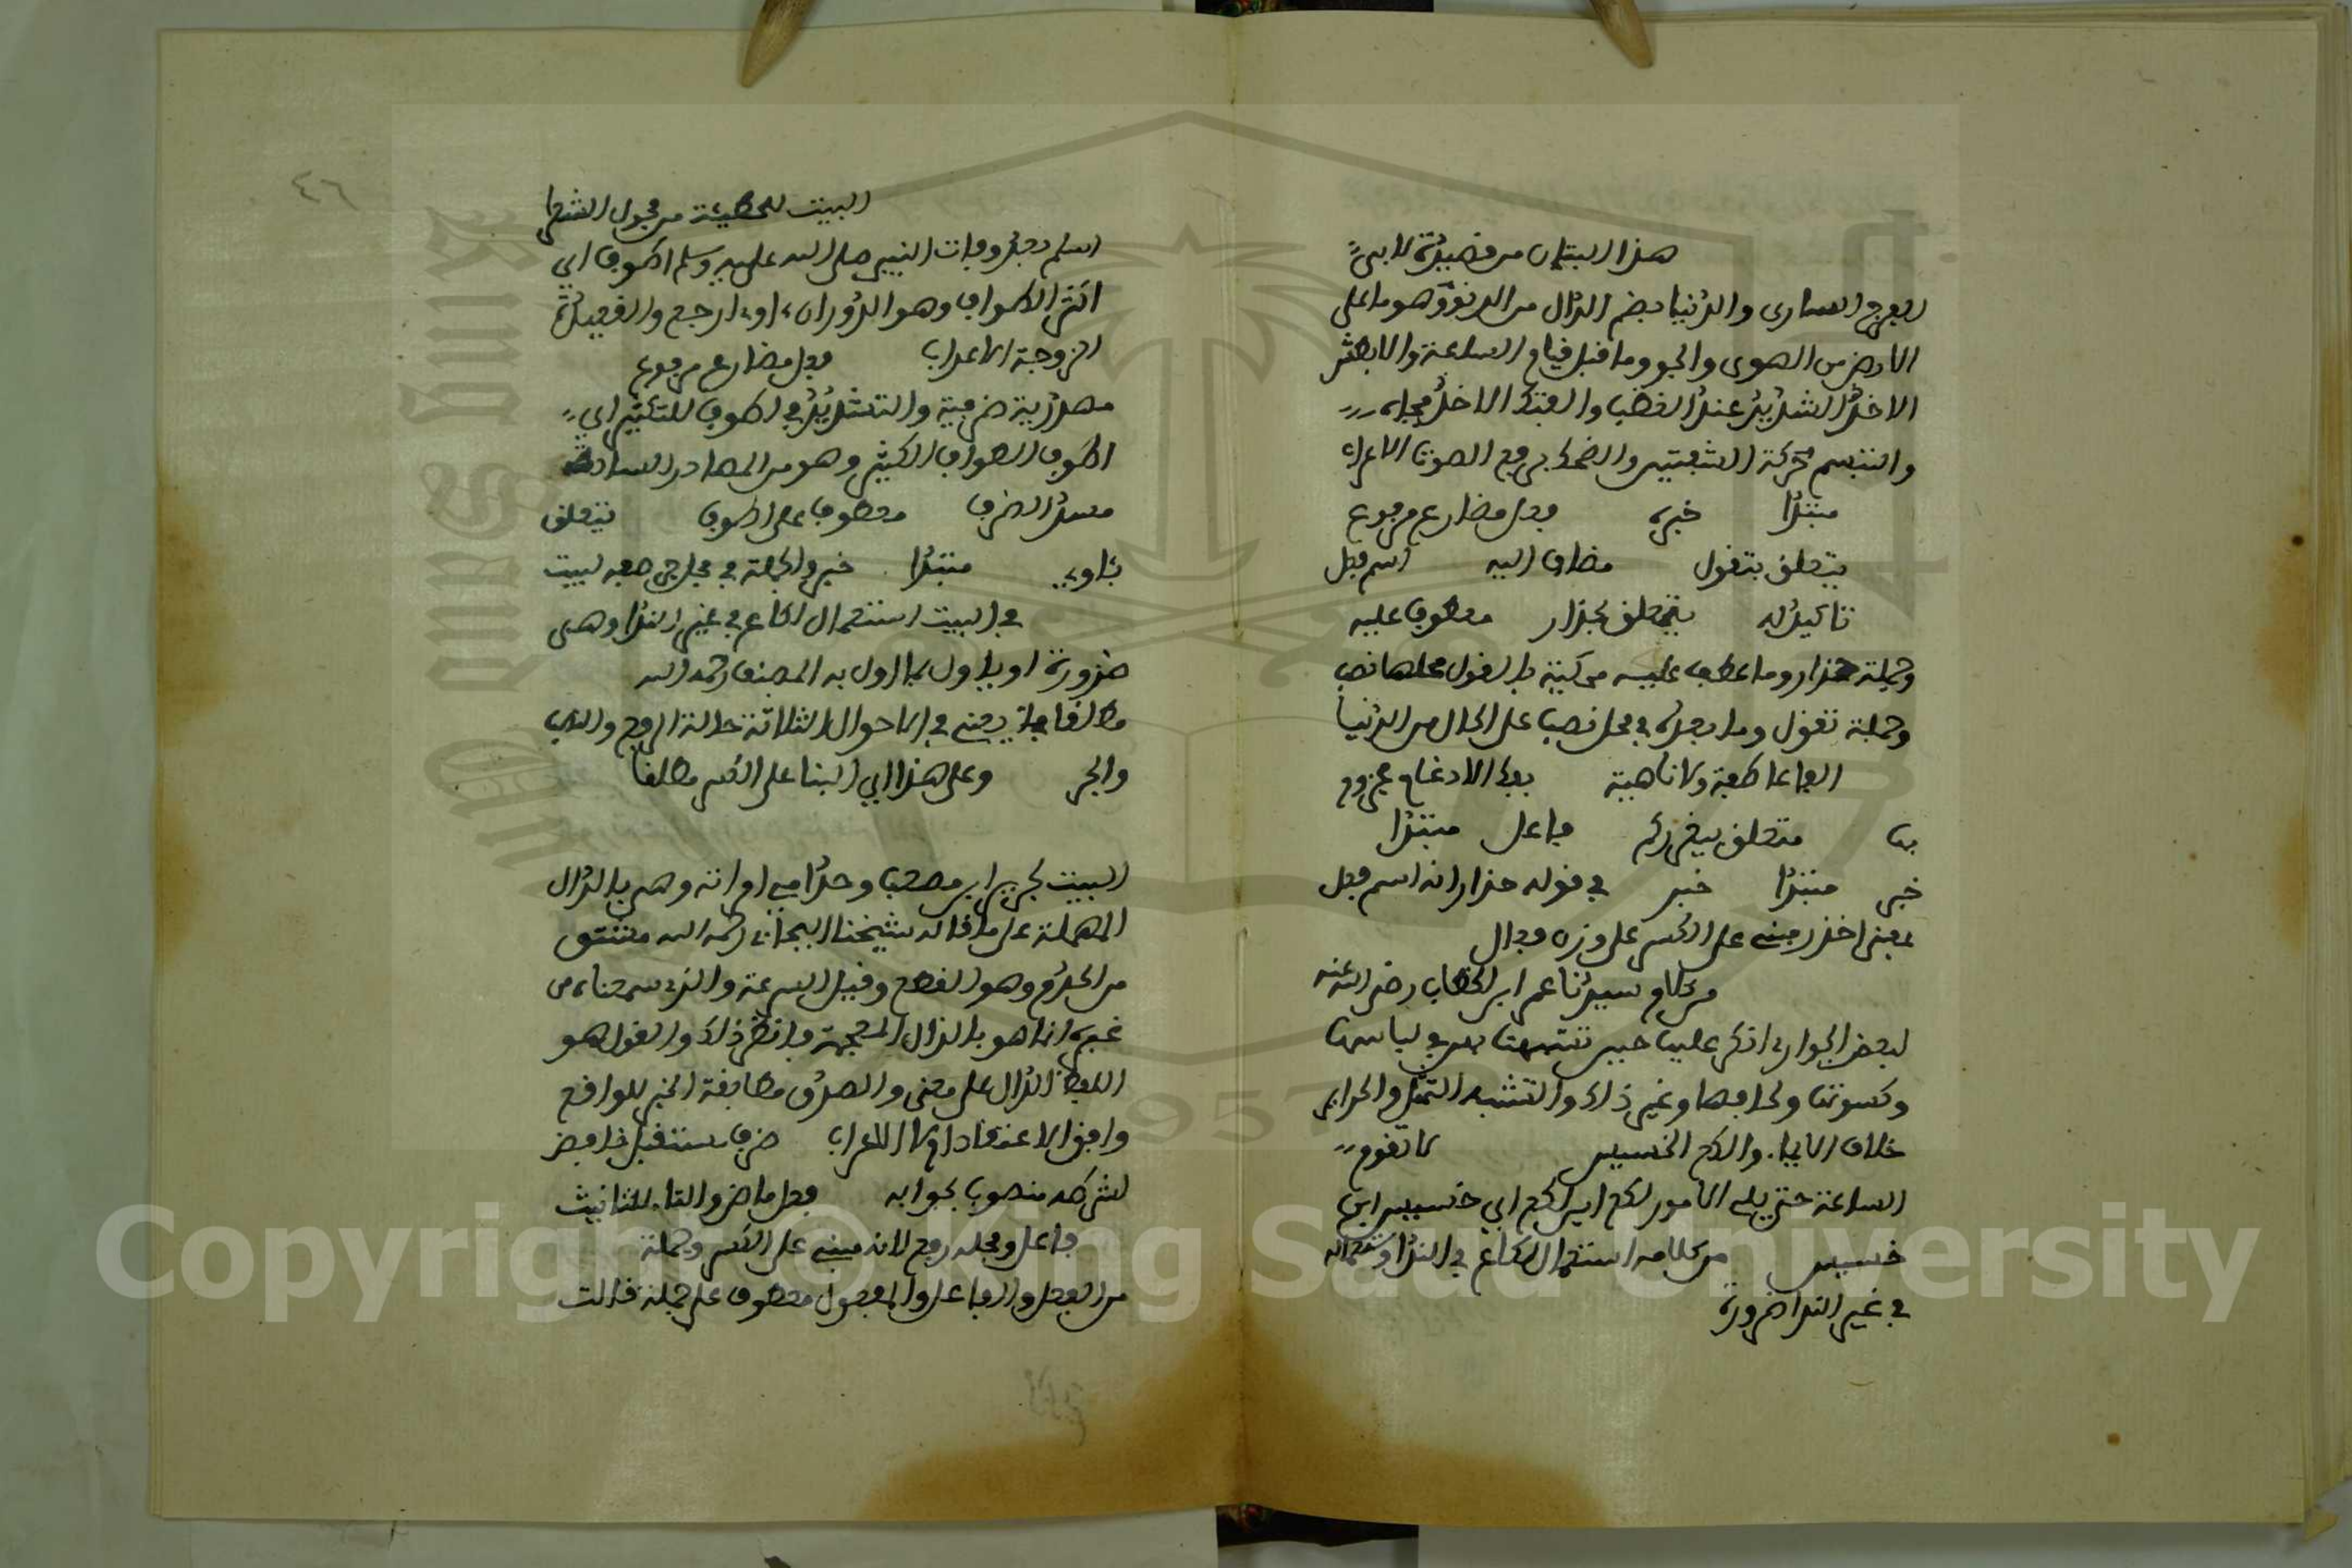 هذا البيتان من قصيدة لابي
الفرج الساوى والدنيا بضم الدال من الدنو وهو ما على
الارض من الهوى والجو وما قبل قيام الساعة والابطش
الاخذ الشديد عند الغضب والفتك الاخذ فجاة
والتبسم حركة الشفتين والضحك برفع الصوت الاعراب
مبتدا خبره فعل مضارع مرفوع
يتعلق بتقول مضاف اليه اسم فعل
تاكيد له يتعلق بحذار معطوف عليه
وجملة حذار وما عطف عليه محكية بالقول محلها نصب
وجملة تقول وما بعده في محل نصب على الحال من الدنيا
الفا عاطفة ولا ناهية بفك الادغام مجزوم
بها متعلق بيغرركم فاعل مبتدا
خبر مبتدا خبر في قوله حذار انه اسم فعل
بمعنى احذر مبني على الكسر على وزن فعال
من كلام سيدنا عمر ابن الخطاب رضي الله عنه
لبعض الجوارى انكر عليها حين تشبهت بهن في لباسها
وكسوتها ولحافها وغير ذلك والتشبه التمثل والحراير
خلاف الاماء والالكع الخسيس لا تقوم
الساعة حتى يلي الامور لكع ابن لكع اي خسيس ابن
خسيس من كلامه استعمال لكاع في الندا وشماله
في غير الندا ضرورة
٤٦
البيت للحطيئة من فحول الشعرا
اسلم بعد وفات النبي صلى الله عليه وسلم اطوف اي
اكثر الاطواف وهو الدوران، اوي ارجع والقعيدة
الزوجة الاعراب فعل مضارع مرفوع
مصدرية ظرفية والتشديد في اطوف للتكثير اي
اطوف الطواف الكثير وهو من المصادر السادة
مسد الظرف معطوف على اطوف يتعلق
بـاوي مبتدا خبره والجملة في محل جر صفة لبيت
في البيت استعمال لكاع في غير الندا وهي
ضرورة او ياول بما اول به المصنف رحمه الله
مطلقا يعني في الاحوال الثلاثة حالة الرفع والنصب
والجر وعلى هذا اي البنا على الكسر مطلقا
البيت لجرير ابن مصعب وحدام امراته وهي بالدال
المهملة على ما قاله شيخنا البجائي رحمه الله مشتق
من الحدم وهو القطع وقيل السرعة والذي سمعناه من
غيره انما هو بالذال المعجمة فانظر ذلك والقول هو
اللفظ الدال على معنى والصدق مطابقة الخبر للواقع
وافق الاعتقاد ام لا الاعراب ظرف مستقبل خافض
لشرطه منصوب بجوابه فعل ماض والتاء للتانيث
فاعل ومحله رفع لانه مبني على الكسر وجملة
من الفعل والفاعل والمفعول معطوف على جملة قالت
Copyright © King Saud University
1957